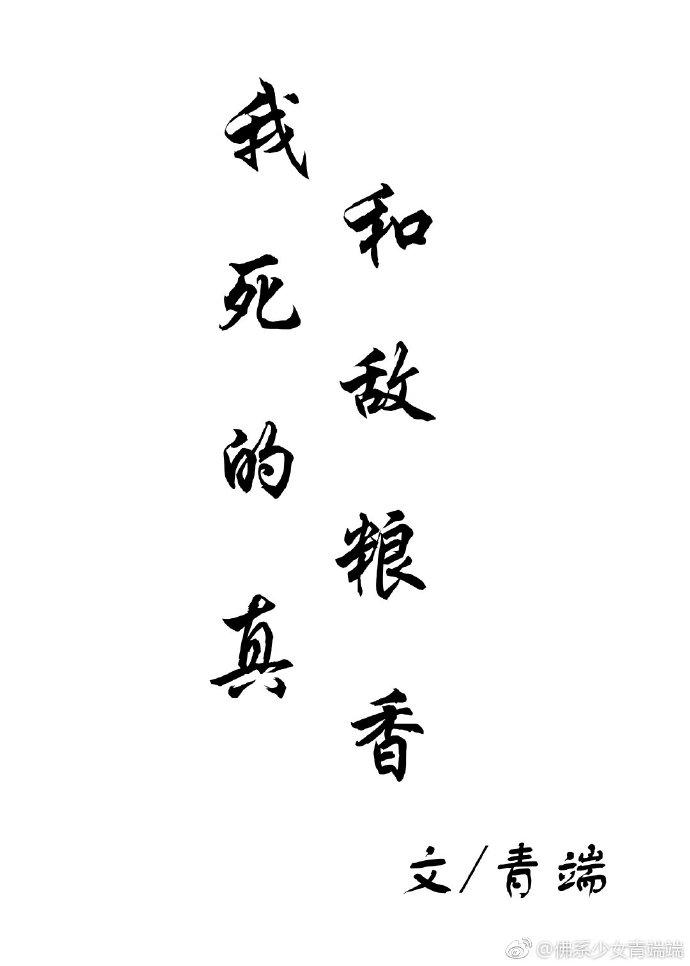 我和死敌的粮真香
文/青端
@佛系少女青端端